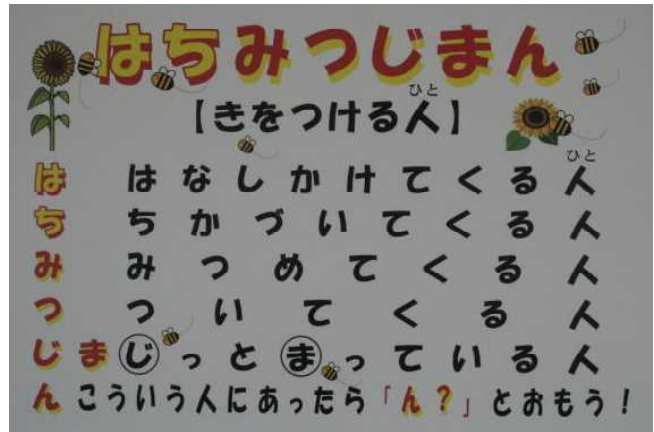 はちみつじまん
ひと
【きをつける人】
ひと
は はなしかけてくる人
ち ちかづいてくる人
み みつめてくる人
つ ついてくる人
じま じっとまっている人
ん こういう人にあったら「ん?」とおもう!